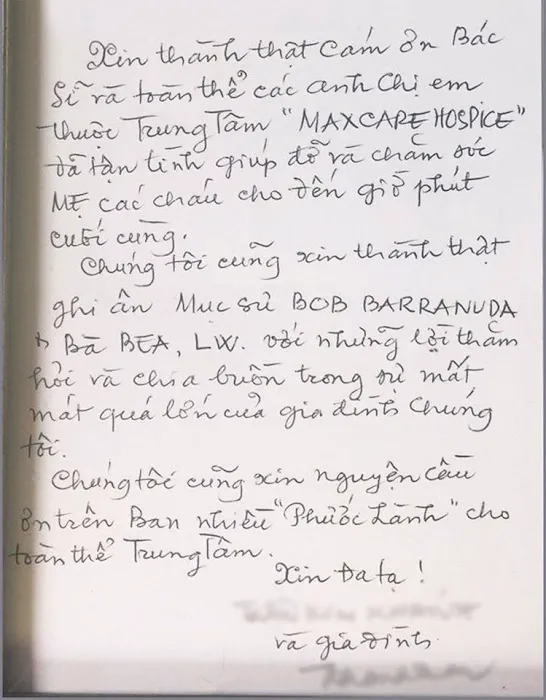 Xin thành thật cám ơn Bác
Sĩ và toàn thể các anh chị em
thuộc Trung Tâm "MAXCARE HOSPICE"
đã tận tình giúp đỡ và chăm sóc
MẸ các cháu cho đến giờ phút
cuối cùng.
Chúng tôi cũng xin thành thật
ghi ân Mục sư BOB BARRANUDA
Bà BEA, LW. với những lời thăm
hỏi và chia buồn trong sự mất
mát quá lớn của gia đình Chúng
tôi.
Chúng tôi cũng xin nguyện cầu
ơn trên Ban nhiều "Phước Lành" cho
toàn thể Trung Tâm.
Xin Đa tạ !
và gia đình